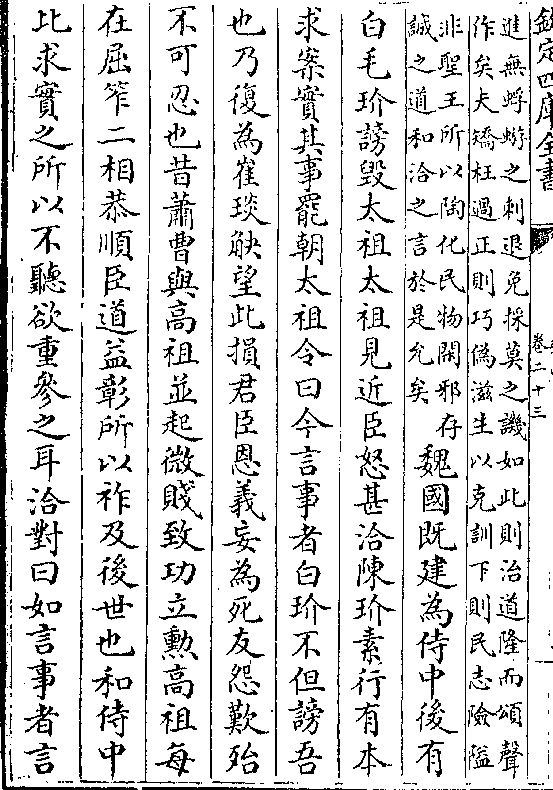 欽定四庫全書
卷二十三
進無蜉蝣之刺退免採莫之譏如此則治道隆而頌聲
作矣夫矯枉過正則巧偽滋生以克訓下則民志險隘
非聖王所以陶化民物閑邪存
誠之道和洽之言於是允矣
魏國既建為侍中後有
白毛玠謗毀太祖太祖見近臣怒甚洽陳玠素行有本
求案實其事罷朝太祖令曰今言事者白玠不但謗吾
也乃復為崔琰觖望此損君臣恩義妄為死友怨歎殆
不可忍也昔蕭曹與高祖並起微賤致功立勲高祖每
在屈笮二相恭順臣道益彰所以祚及後世也和侍中
比求實之所以不聽欲重參之耳洽對曰如言事者言